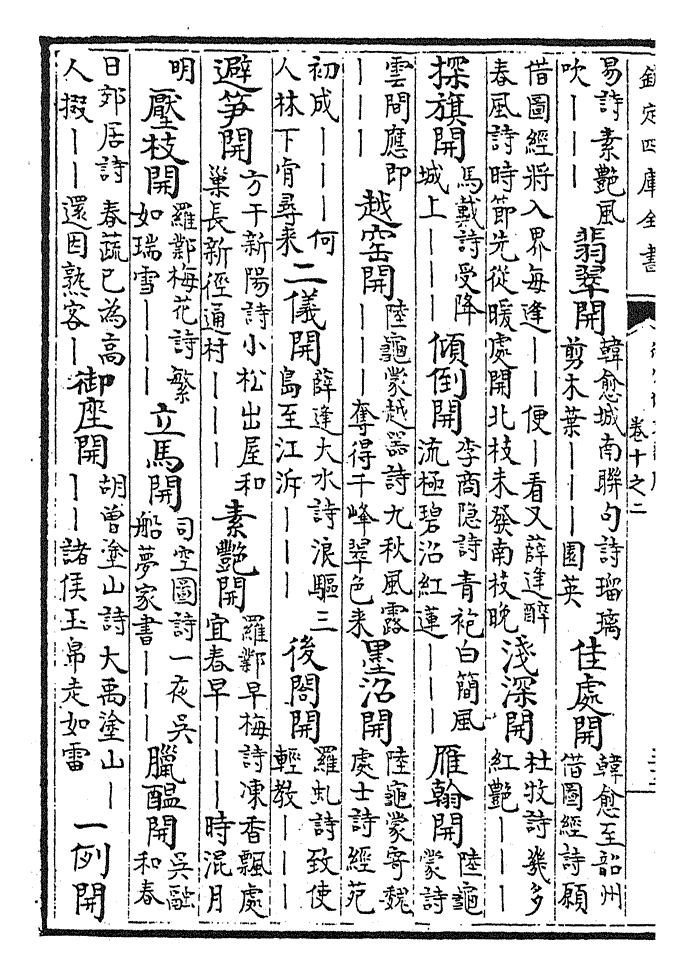 欽定四庫全書
卷十之二
易詩素艷風
吹｜｜｜
翡翠開
韓愈城南聯句詩瑠璃
剪木葉｜｜｜園英
佳處開
韓愈至韶州
借圖經詩願
借圖經將入界每逢｜｜便｜看又薛逢醉
春風詩時節先從暖處開北枝未發南枝晚
淺深開
杜牧詩幾多
紅艷｜｜｜
探旗開
馬戴詩受降
城上｜｜｜
傾倒開
李商隐詩青袍白簡風
流極碧沼紅蓮｜｜｜
雁翰開
陸龜
蒙詩
雲間應即
｜｜｜
越窑開
陸龜蒙越器詩九秋風露
｜｜｜奪得千峰翠色来
墨沼開
陸龜蒙寄魏
處士詩經苑
初成｜｜｜何
人林下肯尋来
二儀開
薛逢大水詩浪驅三
島至江泝｜｜｜
後閤開
羅虬詩致使
輕教｜｜｜
避笋開
方干新陽詩小松出屋和
巢長新徑通村｜｜｜
素艷開
羅鄴早梅詩凍香飄處
宜春早｜｜｜時混月
明
壓枝開
羅鄴梅花詩繁
如瑞雪｜｜｜
立馬開
司空圖詩一夜吳
船夢家書｜｜｜
臘醖開
吳融
和春
日郊居詩春蔬已為高
人掇｜｜還因熟客｜
御座開
胡曽塗山詩大禹塗山｜
｜｜諸侯玉帛走如雷
一例開